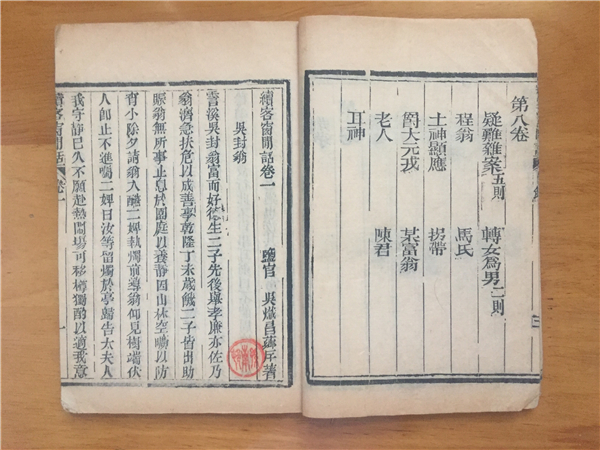 第八卷
疑難雜案五則 轉女爲男二則
程翁 馬氏
土神顯應 拐帶
閻大元戎 某富翁
老人 陳君
耳神
續客窗閒話卷一
鹽官 吳熾昌薌厈著
吳封翁
霅溪吳封翁富而好德生二子先後舉孝廉亦佐乃
翁濟急扶危以成善事乾隆丁未歲饑二子皆出助
賑翁無所事止息於園庭以養靜因山林空曠以防
宵小除夕請翁入醼二婢執燭前導翁仰見樹端伏
人卽止不進囑二婢曰汝等留燭於亭歸告太夫人
我守靜已久不願赴熱鬧場可移樽獨酌以適我意
續客窗閒話 卷一 一